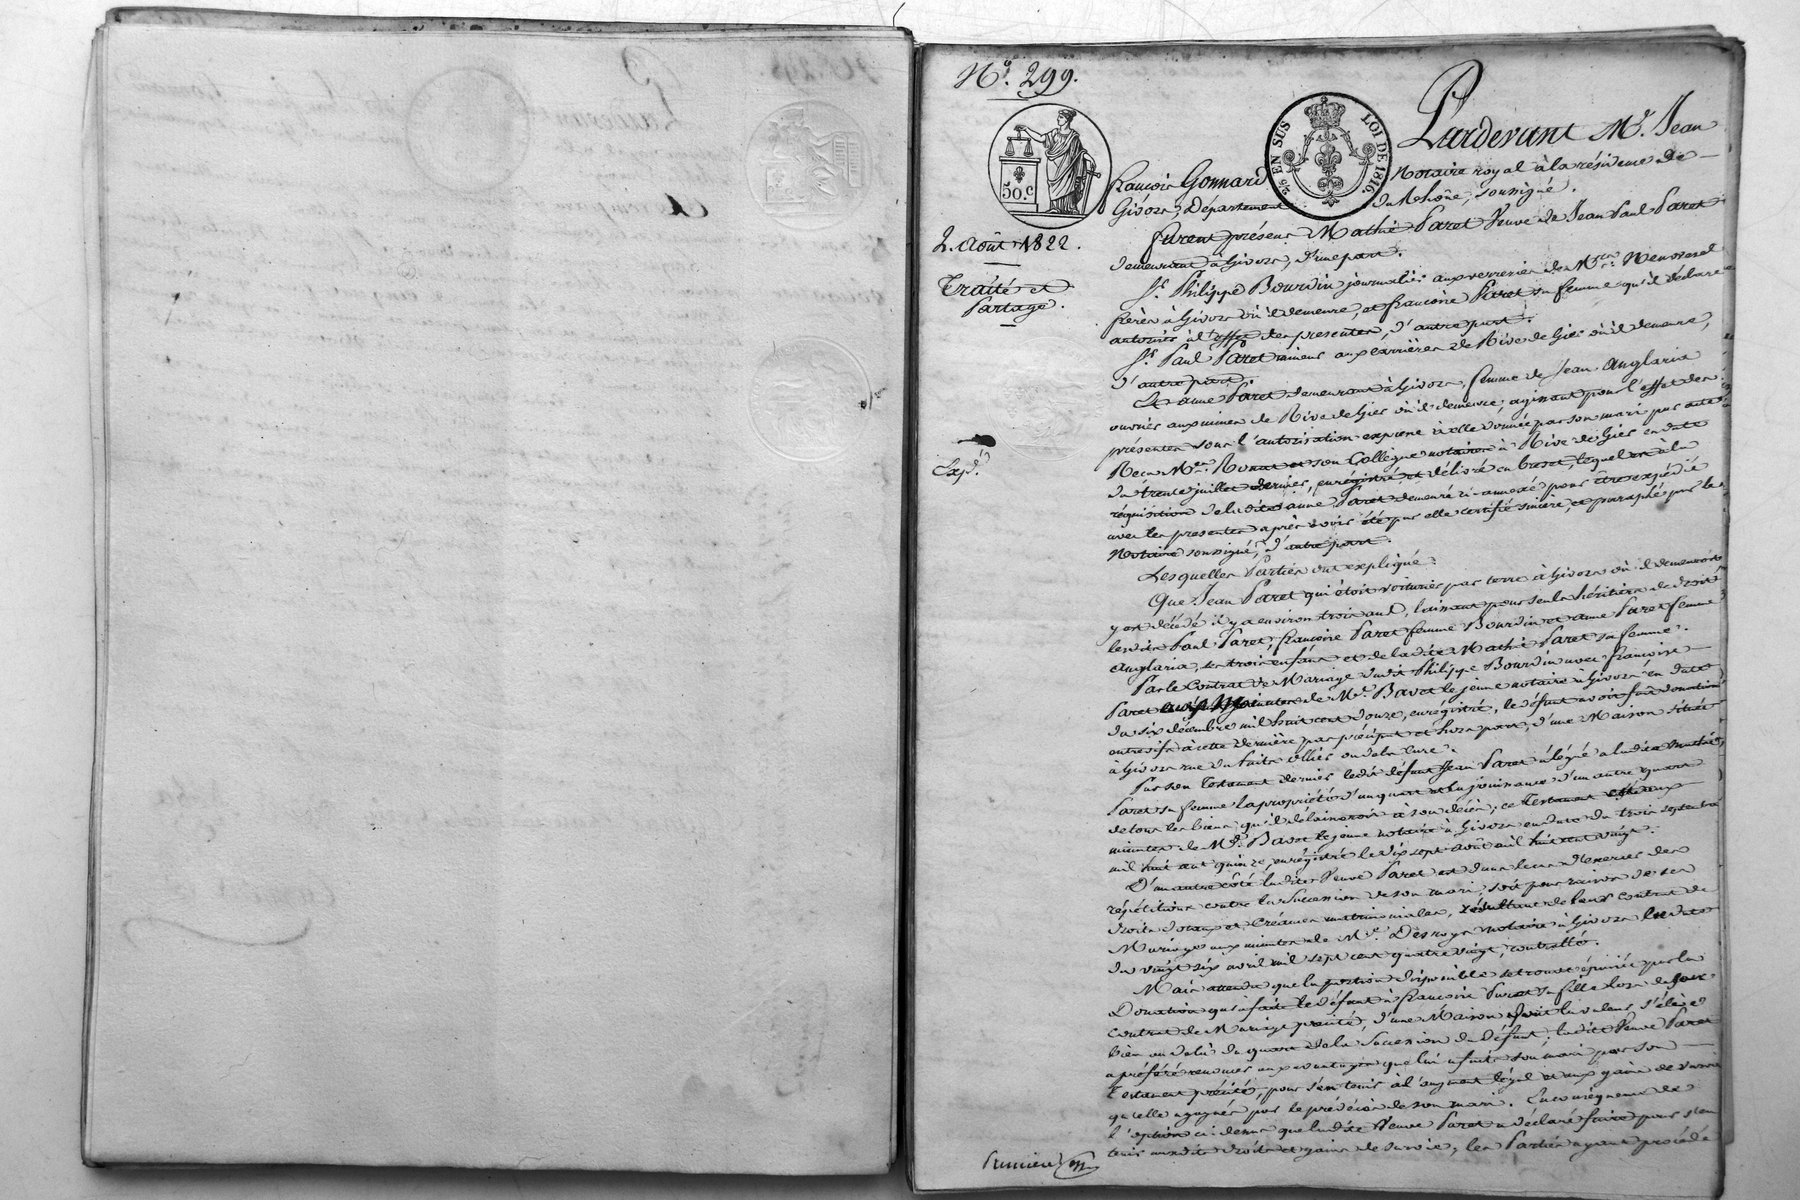 N.º 299.
50.c
2/5 EN SUS LOI DE 1816.
2. Août 1822.
Traité et
Partage.
Exp.é
Pardevant M.e Jean
François Gonnard Notaire royal à la résidence de
Givors, Département du Rhône, soussigné.
furent présens Mathie Paret Veuve de Jean Paul Paret
demeurant à Givors, d'une part.
S.r Philippe Bourdin journalier aux verreries de M.rs
frères à Givors où il demeure, et françoise Paret sa femme qu'il déclare
autoriser à l'effet des présentes, d'autre part.
S.r Paul Paret mineur aux carrières de Rive de Gier où il demeure,
d'autre part.
Et anne Paret demeurant à Givors, femme de Jean Anglaris
ouvrier aux mines de Rive de Gier où il demeure, agissant pour l'effet des
présentes sous l'autorisation expresse à elle donnée par son mari par acte
Reçu M.e et son Collègue notaires à Rive de Gier en date
du trente juillet dernier, enregistré, et délivré en brevet, lequel à la
réquisition de ladite anne Paret demeuré ci-annexé pour être expédié
avec les présentes après avoir été par elle certifié sincère, et paraphé par le
Notaire soussigné, d'autre part.
Lesquelles Parties ont expliqué:
Que Jean Paret qui étoit voiturier par terre à Givors où il demeuroit
y est décédé il y a environ trois ans, laissant pour seuls héritiers de droit
lesdits Paul Paret, françoise Paret femme Bourdin et anne Paret femme
Anglaris, ses trois enfans et de ladite Mathie Paret sa femme.
Par le Contrat de Mariage dudit Philippe Bourdin avec françoise
Paret minutes de M.e Bavet le jeune notaire à Givors en date
du six décembre mil huit cent douze, enregistré, le défunt avoit fait donation
entrevifs à cette dernière par préciput et hors part, d'une Maison située
à Givors rue du Puits ou de la Cure.
Par son Testament dernier ledit défunt Jean Paret a légué a ladite Mathie
Paret sa femme la propriété d'un quart et la jouissance d'un autre quart
de tous les biens qu'il délaisseroit à son décès; ce Testament est aux
minutes de M.e Bavet le jeune notaire à Givors en date du trois septembre
mil huit cent quinze, enregistré le dix sept août mil huit cent vingt.
D'un autre côté ladite Veuve Paret est dans le cas d'exercer des
répétitions contre la Succession de son mari, soit pour raison de ses
droits dotaux et Créances matrimoniales, résultant de leur contrat de
Mariage aux minutes de M.e Desroys notaire à Givors en date
du vingt six avril mil sept cent quatre vingt, controllé.
Mais attendu que la portion disponible se trouve épuisée par la
Donation qu'a faite le défunt à françoise Paret sa fille lors de son
contrat de Mariage précité, d'une Maison dont la valeur s'élève
bien au delà du quart de la Succession du Défunt, ladite Veuve Paret
a préféré renoncer aux avantages que lui a faits son mari par son
Testament précité, pour s'en tenir à l'augment légal et aux gains de survie
qu'elle a gagnés par le prédécès de son mari. En conséquence de
l'option ci-dessus que ladite Veuve Paret a déclaré faire pour s'en
tenir auxdits droits et gains de survie, les Parties ayant procédé